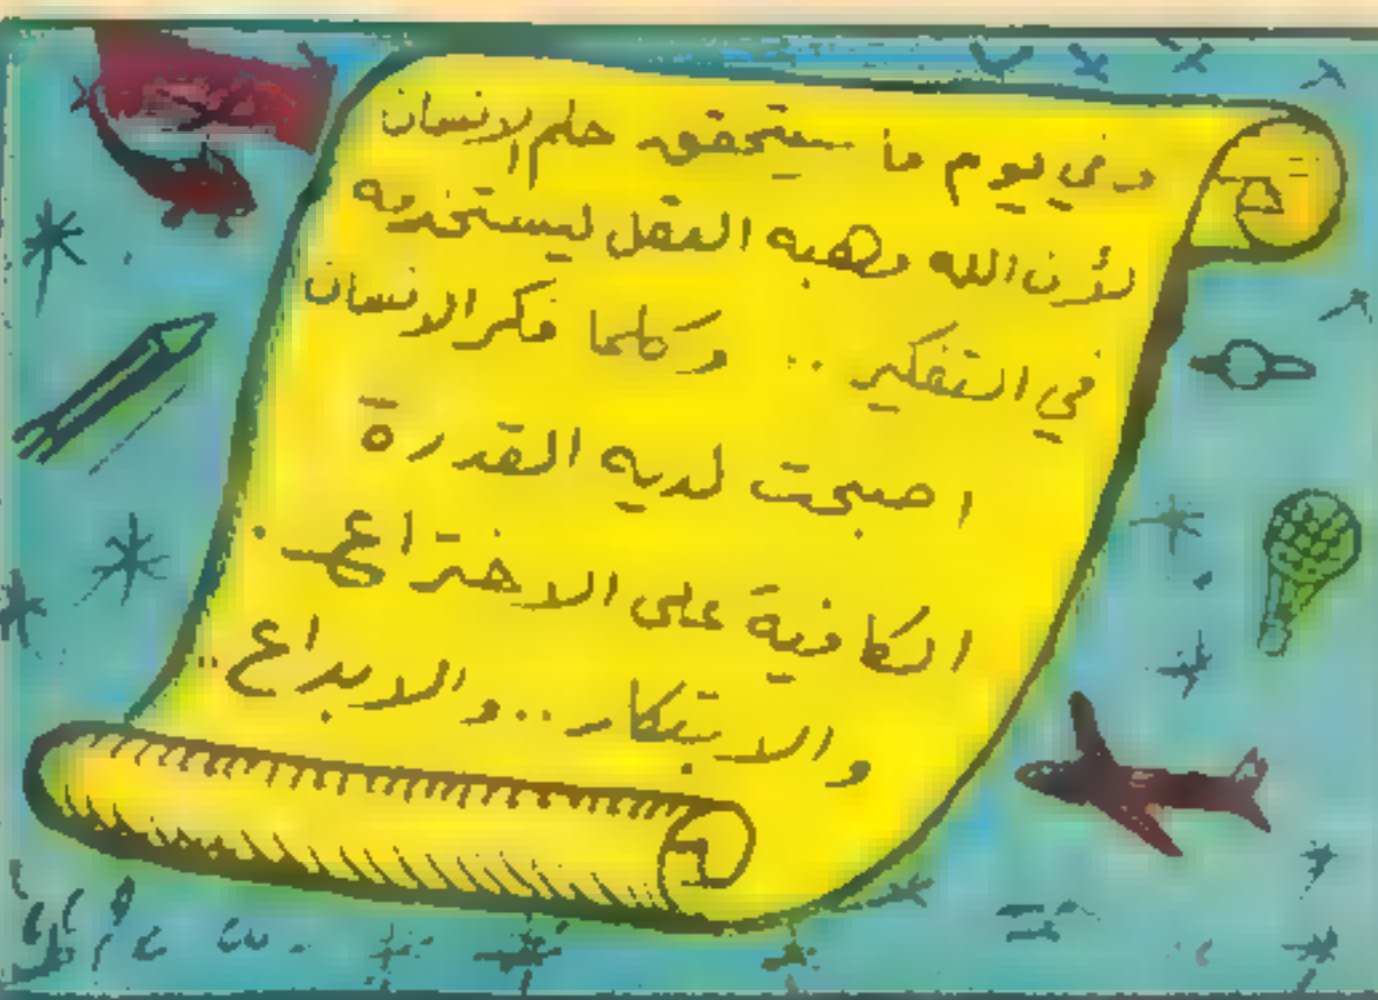 وفي يوم ما ستحقق حلم الإنسان
لأن الله وهبه العقل ليستخدمه
في التفكير .. وكلما فكر الإنسان
اصبحت لديه القدرة
الكافية على الاختراع .
والابتكار .. والابداع ..